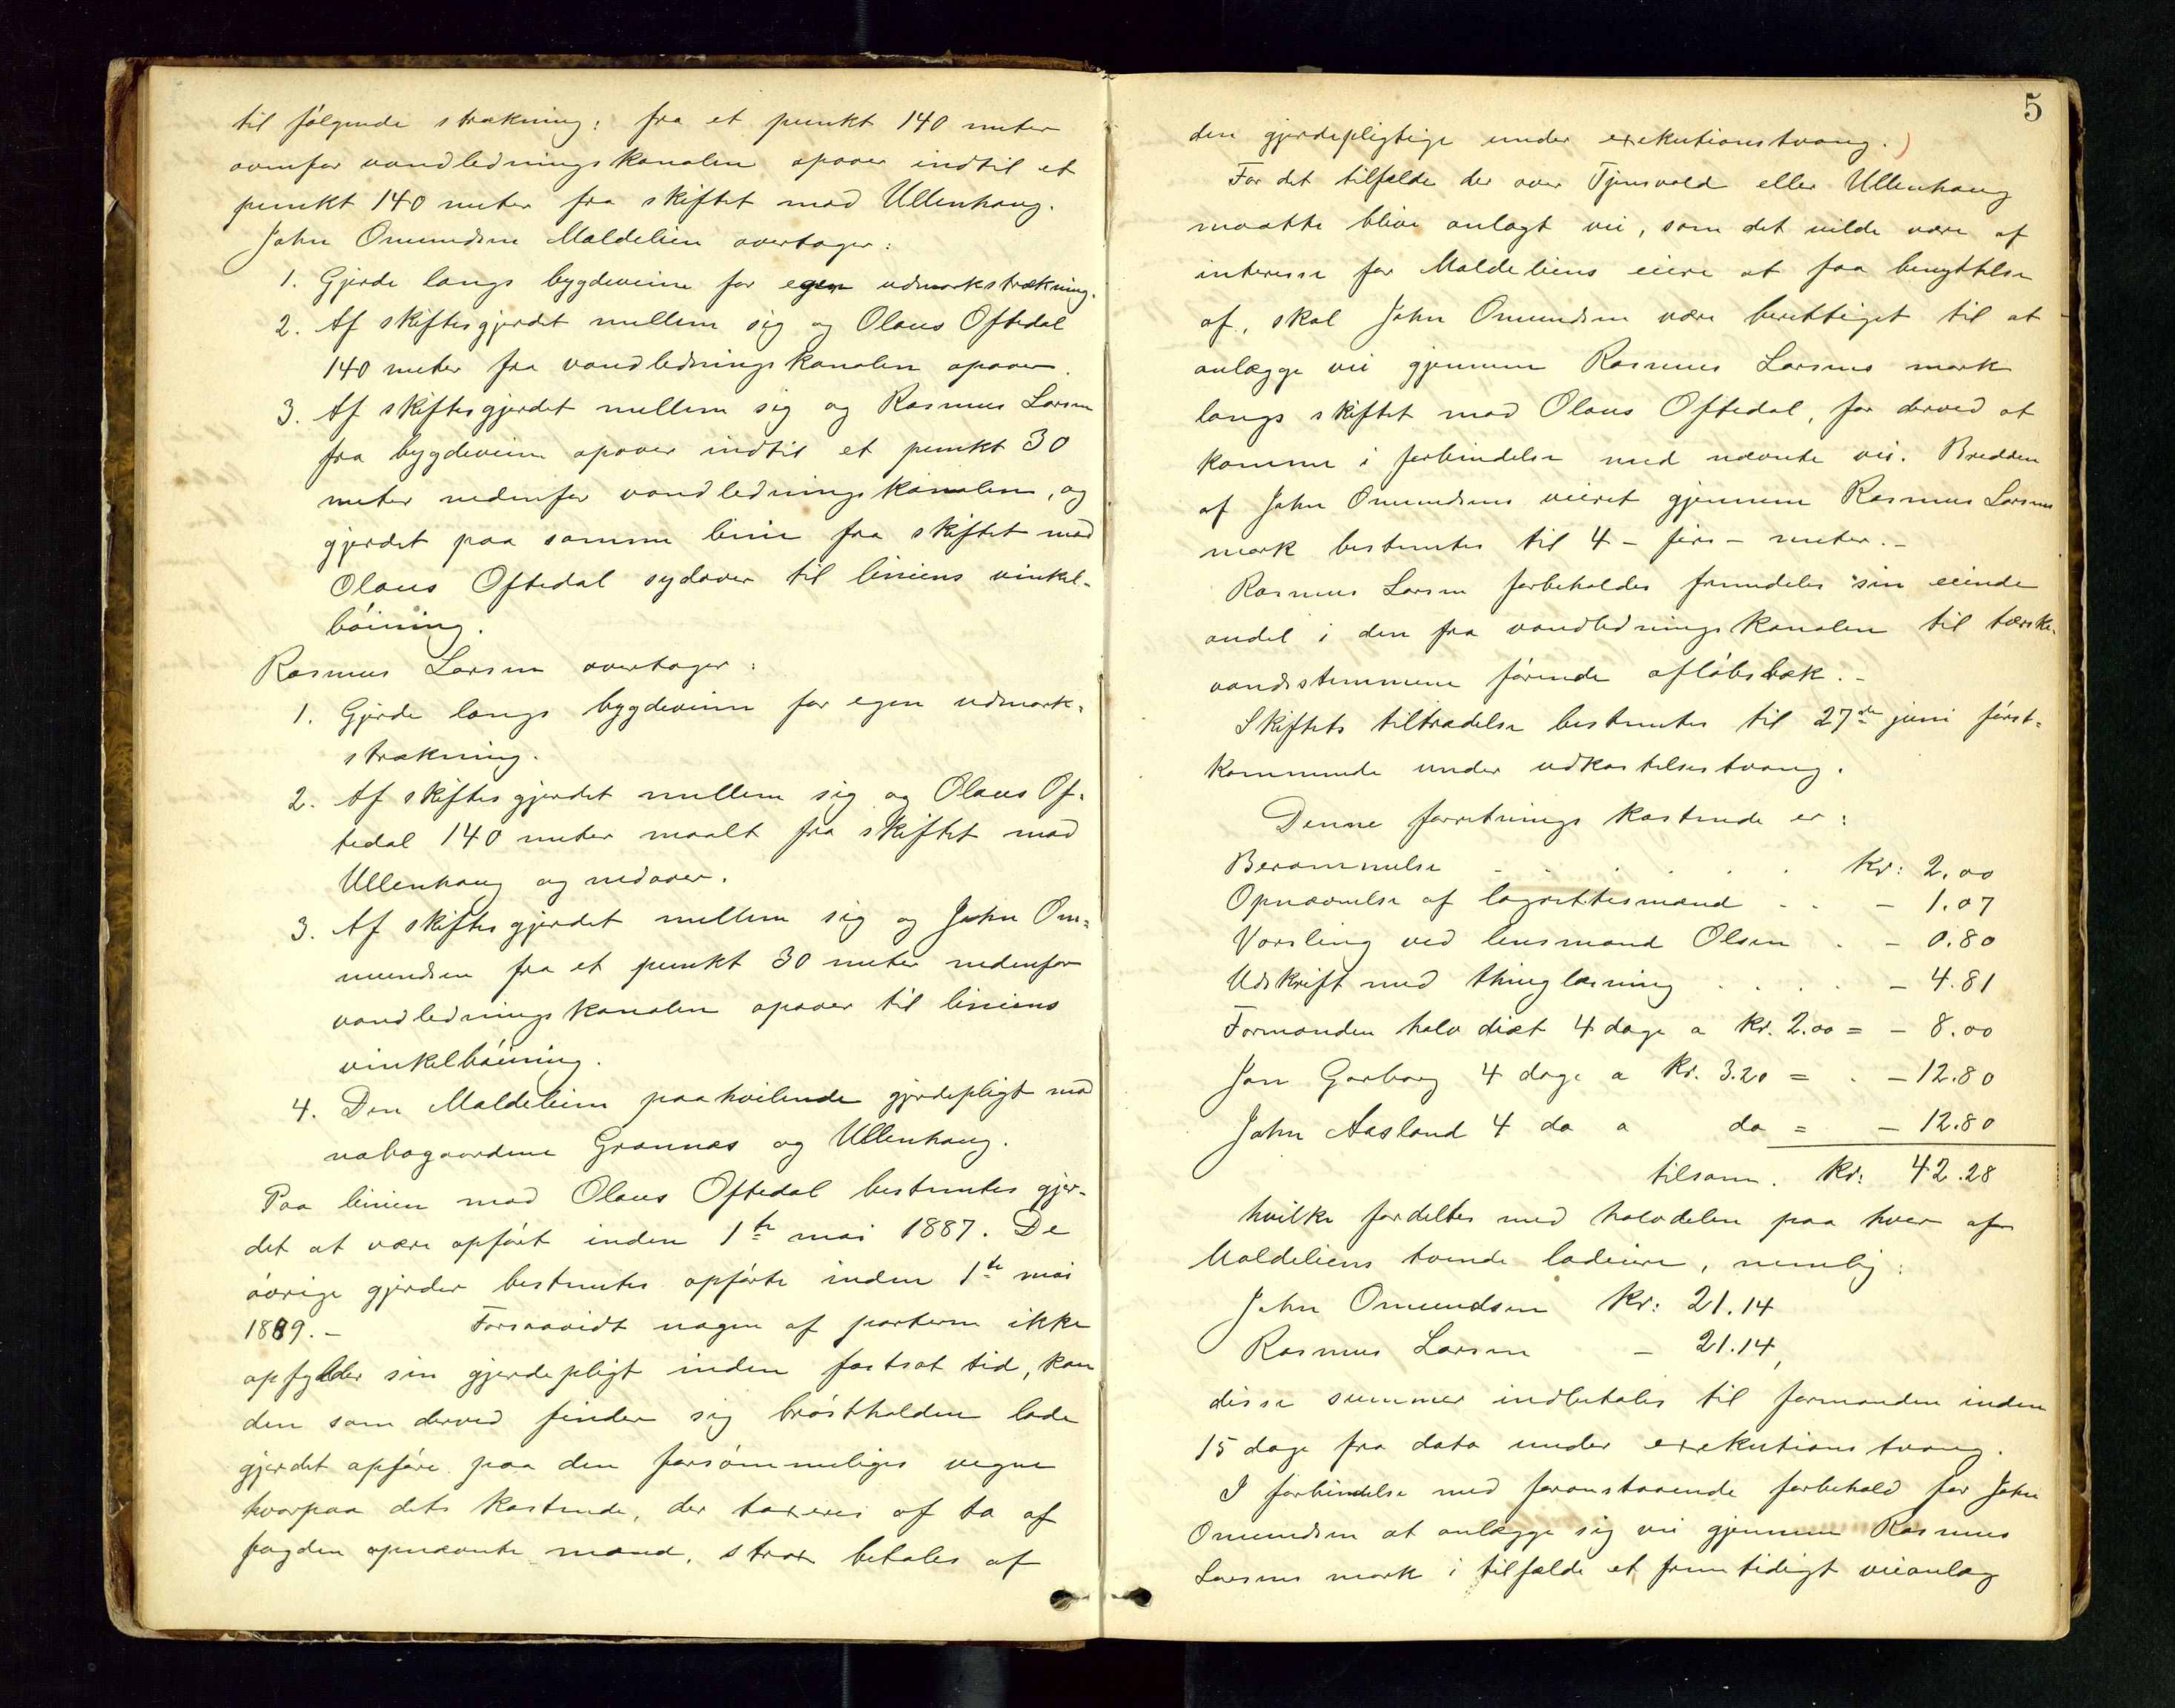 til følgende strækning: fra et punkt 140 meter
ovenfor vandledningskanalen opover indtil et
punkt 140 meter fra skiftet mod Ullenhaug.
John Omundsen Maldelien overtager:
1. Gjerde langs bygdeveien for egen udmarkstrækning.
2. Af skiftesgjerdet mellem sig og Olaus Oftedal
140 meter fra vandledningskanalen opover.
3. Af skiftesgjerdet mellem sig og Rasmus Larsen
fra bygdeveien opover indtil et punkt 30
meter nedenfor vandledningskanalen, og
gjerdet paa samme linie fra skiftet mod
Olaus Oftedal sydover til liniens vinkel-
bøining.
Rasmus Larsen overtager:
1. Gjerde langs bygdeveien for egen udmark-
strækning.
2. Af skiftesgjerdet mellem sig og Olaus Of-
tedal 140 meter maalt fra skiftet mod
Ullenhaug og nedover.
3. Af skiftesgjerdet mellem sig og John Om-
mundsen fra et punkt 30 meter nedenfor
vandledningskanalen opover til liniens
vinkelbøining.
4. Den Maldelien paahvilende gjerdepligt mod
nabogaardene Grannæs og Ullenhaug.
Paa linien mod Olaus Oftedal bestemtes gjer-
det at være opført inden 1te mai 1887. De
øvrige gjerder bestemtes opførte inden 1te mai
1889. - Forsaavidt nogen af parterne ikke
opfylder sin gjerdepligt inden fastsat tid, kan
den som derved finder sig brøstholden lade
gjerdet opføre paa den forsømmeliges vegne
hvorpaa dets kostende, der taxeres af to af
fogden opnævnte mænd, strax betales af
5
den gjerdepligtige under exekutionstvang.)
For det tilfælde der over Tjensvold eller Ullenhaug
maatte blive anlagt vei, som det vilde være af
interesse for Maldeliens eiere at faa benyttelse
af, skal John Omundsen være berettiget til at
anlægge vei gjennem Rasmus Larsens mark
langs skiftet mod Olaus Oftedal, for derved at
komme i forbindelse med nævnte vei. Bredden
af John Omundsens veiret gjennem Rasmus Larsens
mark bestemtes til 4 - fire - meter. -
Rasmus Larsen forbeholdes fremdeles sin eiende
andel i den fra vandledningskanalen til tærske-
vandsstemmene førende afløbsbæk. -
Skiftets tiltrædelse bestemtes til 27de juni først-
kommende under udkastelsestvang.
Denne forretnings kostende er:
Berammelse . . . . . kr: 2.00
Opnævnelse af lagrettesmænd . . - 1.07
Varsling ved lensmand Olsen . - 0.80
Udskrift med thinglæsning . . . . - 4.81
Formanden halv diæt 4 dage a kr. 2.00 = - 8.00
Jon Garborg 4 dage a kr. 3.20 = . - 12.80
John Aasland 4 do a do = - 12.80
tilsam. kr: 42.28
hvilke fordeltes med halvdelen paa hver af
Maldeliens tvende lodeiere, nemlig:
John Omundsen kr: 21.14
Rasmus Larsen - 21.14,
disse summer indbetales til formanden inden
15 dage fra dato under exekutionstvang.
I forbindelse med foranstaaende forbehold for John
Omundsen at anlægge sig vei gjennem Rasmus
Larsens mark i tilfælde et fremtidigt veianlæg